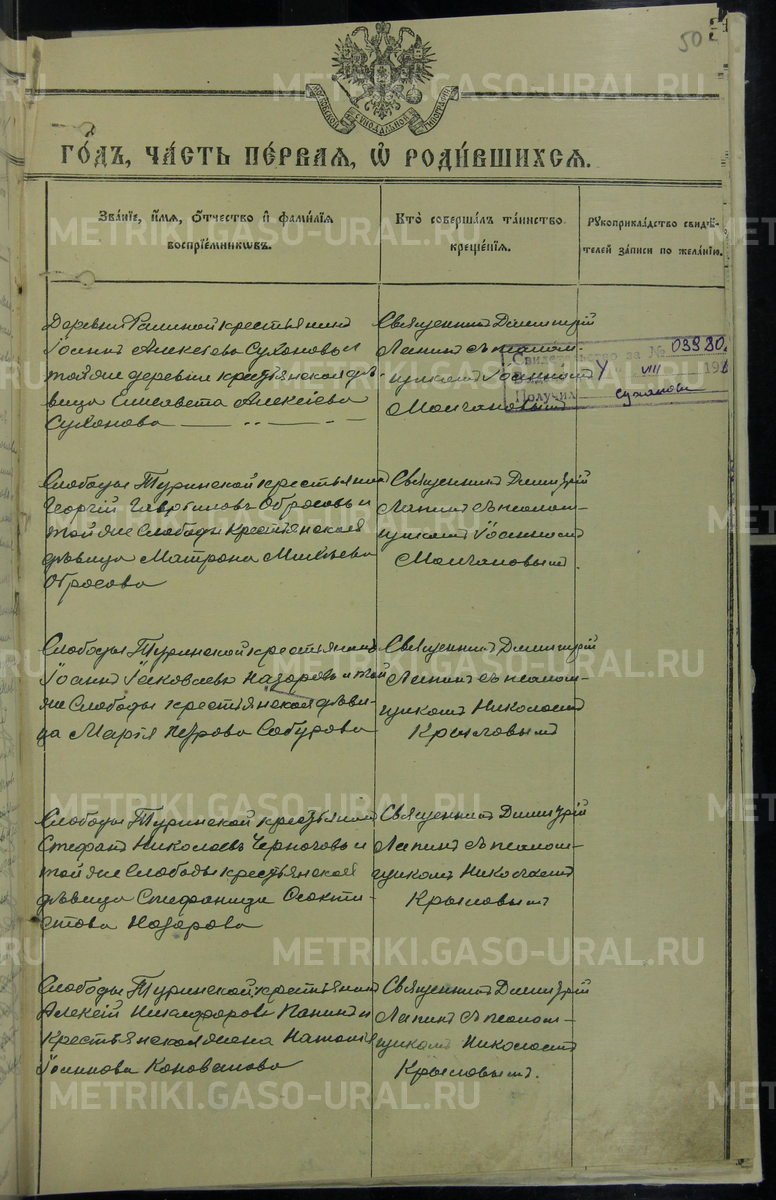 50
МОСКОВСКОЙ СѴНОДАЛЬНОЙ ТИПОГРАФІИ
METRIKI.GASO-URAL.RU
ГО́ДЪ, ЧА́СТЬ ПЕ́РВАЯ, Ѡ҆ РОДИ́ВШИХСѦ.
Зва́нїе, и҆́мѧ, ѻ҆́тчество и҆ фами́лїѧ воспрїе́мникѡвъ.
Кто̀ соверша́лъ та́инство креще́нїѧ.
Рꙋкоприкла́дство свидѣ́телей за́писи по жела́нїю.
Деревни крестьянинъ
Іоаннъ Алексѣевъ Сухановъ и
той же деревни крестьянская дѣ-
вица Елисавета Алексѣева
Суханова
Священникъ Димитрій
Лапинъ съ псалом-
щикомъ Іоанномъ
Молчановымъ
Свидетельство за № 03980
VII 191
Получил Суханова
Слободы Туринской крестьянинъ
Георгій Гавриловъ Обросовъ и
той же Слободы крестьянская
дѣвица Матрона Михеева
Обросова
Священникъ Димитрій
Лапинъ съ псалом-
щикомъ Іоанномъ
Молчановымъ.
Слободы Туринской крестьянинъ
Іоаннъ Іаковлевъ Назаровъ и той
же Слободы крестьянская дѣви-
ца Марія Петрова Сабурова
Священникъ Димитрій
Лапинъ съ псалом-
щикомъ Николаемъ
Крыловымъ
Слободы Туринской крестьянинъ
Стефанъ Николаевъ и
той же Слободы крестьянская
дѣвица Стефанида Феокти-
стова Назарова
Священникъ Димитрій
Лапинъ съ псалом-
щикомъ Николаемъ
Крыловымъ
Слободы Туринской крестьянинъ
Алексій Никифоровъ Панинъ и
крестьянская жена Наталія
Іоаннова Коновалова
Священникъ Димитрій
Лапинъ съ псалом-
щикомъ Николаемъ
Крыловымъ.